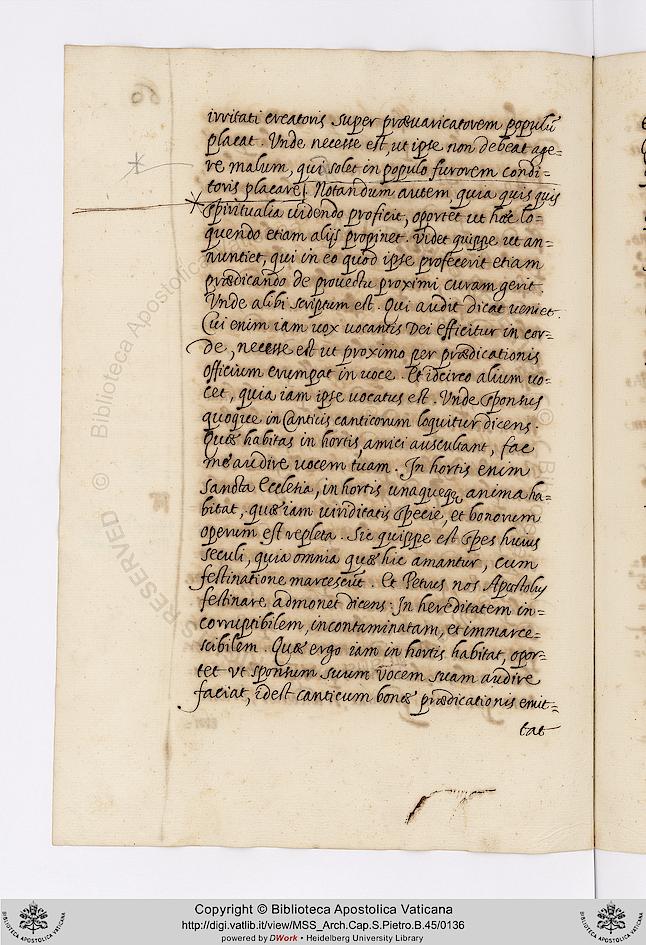 irritati creatoris super præuaricatorem populũ
placat. Vnde necesse est, ut ipse non debeat age=
re malum, qui solet in populo furorem condi=
toris placare. Notandum autem quia quisquis
spiritualia uidendo proficit, oportet ut hæc lo=
quendo etiam alijs propinet. Videt quippe ut an=
nuntiet, qui in eo quod ipse profecerit etiam
prædicando de prouectu proximi curam gerit.
Vnde alibi scriptum est. Qui audit dicat ueniet.
Cui enim iam uox uocantis Dei efficitur in cor=
de, necesse est ut proximo per prædicationis
officium erumpat in uoce. Et idcirco alium uo=
cet, quia iam ipse uocatus est. Vnde sponsus
quoque in Canticis canticorum loquitur dicens.
Quæ habitas in hortis, amici auscultant, fac
me audire uocem tuam. In hortis enim
sancta Ecclesia, in hortis unaquæq; anima ha=
bitat, quæ iam uiriditatis specie, et bonorum
operum est repleta. Sic quippe est spes huius
seculi, quia omnia quæ hic amantur, cum
festinatione marcescũt. Et Petrus nos Apostolus
festinare admonet dicens: In hereditatem in=
corruptibilem, incontaminatam, et immarce=
scibilem. Quæ ergo iam in hortis habitat, opor=
tet ut sponsum suum uocem suam audire
faciat, idest canticum bonæ prædicationis emit=
tat
RESERVED © Biblioteca Apostolica
Copyright © Biblioteca Apostolica Vaticana
http://digi.vatlib.it/view/MSS_Arch.Cap.S.Pietro.B.45/0136
powered by DWork • Heidelberg University Library